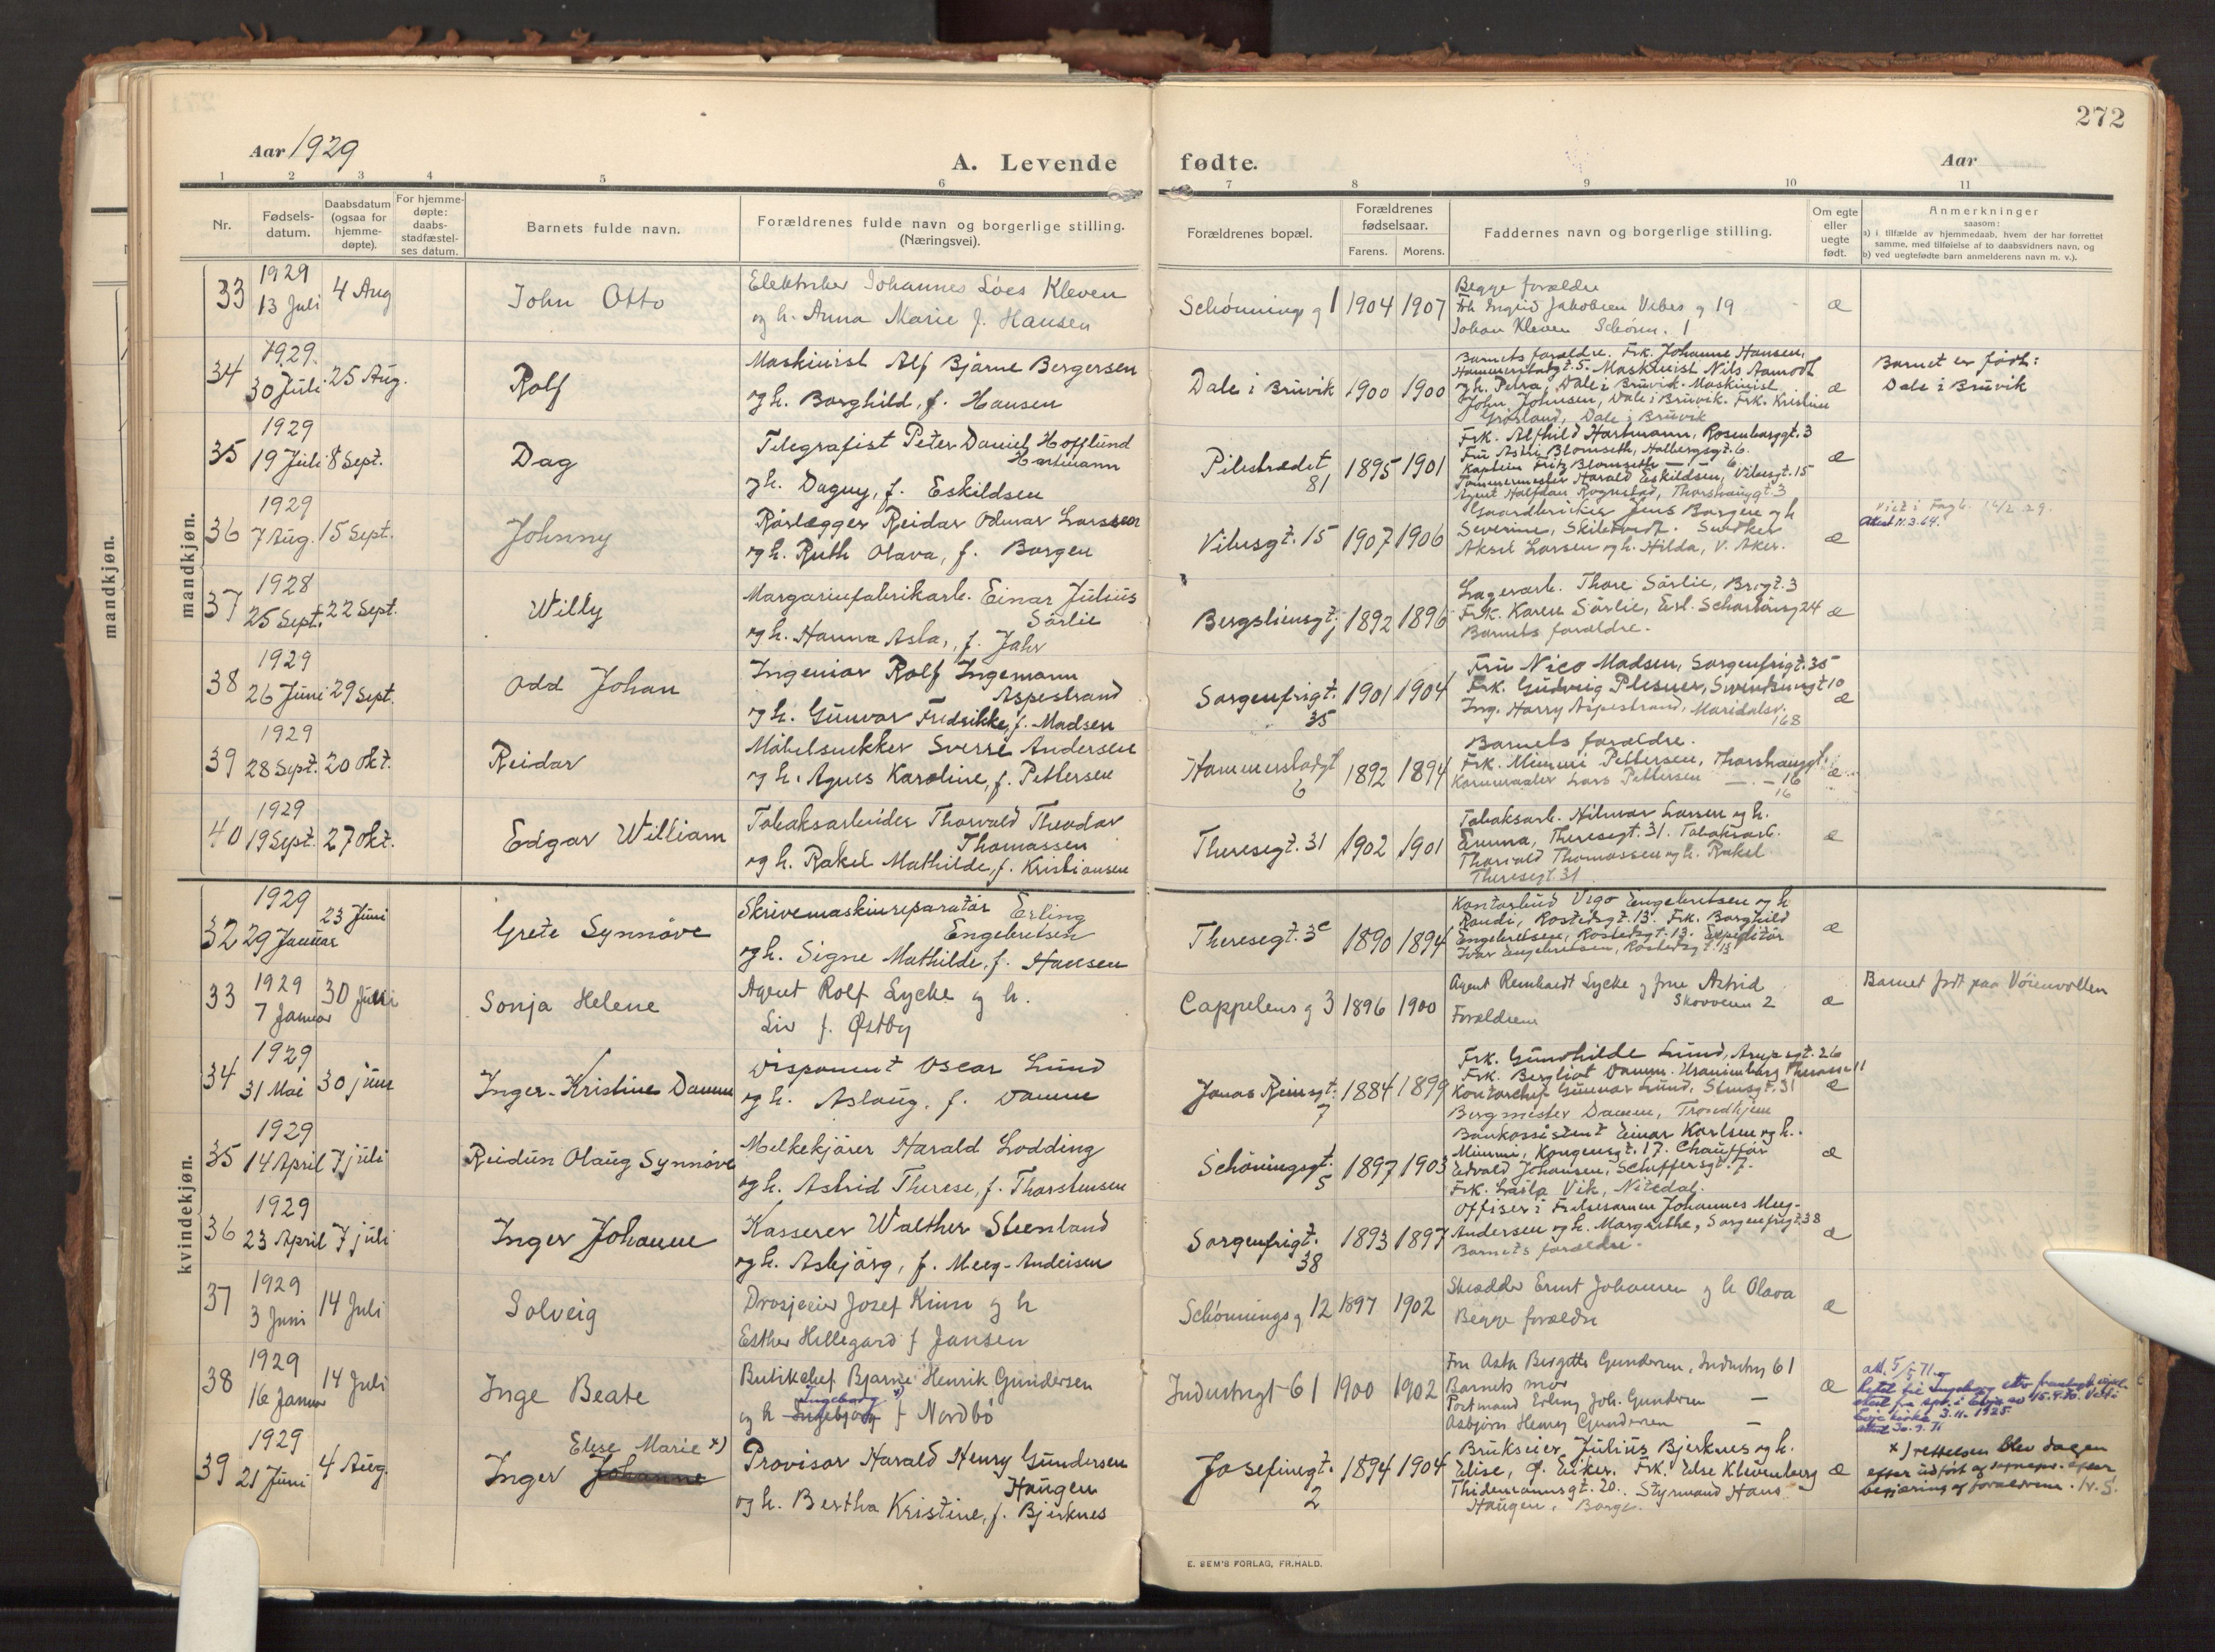 272
Aar 1929
A. Levende fødte.
Aar
1 2 3 4 5 6 7 8 9 10 11
Nr.
Fødsels-
datum.
Daabsdatum
(ogsaa for
hjemme-
døpte).
For hjemme-
døpte:
daabs-
stadfæstel-
ses datum.
Barnets fulde navn.
Forældrenes fulde navn og borgerlige stilling.
(Næringsvei).
Forældrenes bopæl.
Forældrenes
fødselsaar.
Farens. Morens.
Faddernes navn og borgerlige stilling.
Om egte
eller
uegte
født.
Anmerkninger
saasom:
a) i tilfælde av hjemmedaab, hvem der har forrettet
samme, med tilføielse af to daabsvidners navn, og
b) ved uegtefødte barn anmelderens navn m. v.).
mandkjøn.
mandkjøn.
33 1929
13 Juli 4 Aug
John Otto
Elektriker Johannes Löes Kleven
og h. Anna Marie f. Hansen
Schønnings g 1 1904 1907
Begge forældre
Frk Ingrid Jakobsen Vibes g 19
Johan Kleven Schønn. 1
æ
34 1929.
30 Juli 25 Aug.
Rolf
Maskinist Alf Bjarne Bergersen
og h. Borghild, f. Hansen
Dale i Brüvik 1900 1900
Barnets forældre. Frk. Johanne Hansen,
Hammerstadgt. 5. Maskinist Nils Aamodt
og h. Petra, Dale i Brüvik. Maskinist
John Johnsen, Dale i Brüvik. Frk. Kristine
Dale i Brüvik
æ
Barnet er født:
Dale i Brüvik
35 1929
19 Juli 8 Sept.
Dag
Telegrafist Peter Daniel Hofflund
Hartmann
og h. Dagny, f. Eskildsen
Pilestrædet
81
1895 1901
Frk. Alfhild Hartmann, Rosenborggt. 3
Frü Astri Blomseth, Holbergsgt. 6.
Kaptein Fritz Blomseth — 6
Tømmermester Harald Eskildsen, Vibesgt. 15
Agent Halfdan Rognstad, Thorshauggt. 3
æ
36 1929
7 Aug. 15 Sept.
Johnny
Rörlægger Reidar Odmar Larssen
og h. Ruth Olava, f. Borgen
Vibesgt. 15 1907 1906
Jens Borgen og h
Severine, Skiletvedt.
Aksel Larsen og h. Hilda, V. Aker.
æ
Viet i Fagb. 14/2 29.
Attest 11.3.64.
37 1928
25 Sept. 22 Sept.
Willy
Margarinfabrikarb. Einar Julius
Sörlie
og h. Hanna Asla, f. Jahr
Bergsliensgt.
1
1892 1896
Lagerarb. Thore Sörlie, Brogt. 3
Frk. Karen Sörlie, Erl. Schartausg 24
Barnets forældre.
æ
38 1929
26 Juni 29 Sept.
Odd Johan
Ingeniör Rolf Ingemann
Aspestrand
og h. Günvor Fredrikke, f. Madsen
Sorgenfrigt.
35
1901 1904
Frü Nico Madsen, Sorgenfrigt. 35
Frk. Gudveig Plesner, Svendsensgt 10
Ing. Harry Aspestrand, Maridalsv.
168
æ
39 1929
28 Sept. 20 Okt.
Reidar
Möbelsnekker Sverre Andersen
og h. Agnes Karoline, f. Pettersen
Hammerstadgt
6
1892 1894
Barnets forældre.
Frk. Mimmi Pettersen, Thorshauggt.
Lars Pettersen — - 16
16
æ
40 1929
19 Sept. 27 Okt.
Edgar William
Tobaksarbeider Thorvald Theodor
Thomassen
og h. Rakel Mathilde, f. Kristiansen
Theresegt. 31 1902 1901
Tobaksarb. Hilmar Larsen og h.
Emma, Theresegt. 31. Tobaksarb.
Thorvald Thomassen og h. Rakel
Theresegt. 31
æ
kvindekjøn.
32 1929
29 Januar 23 Juni
Grete Synnöve
Skrivemaskinreparatör Erling
Engebretsen
og h. Signe Mathilde, f. Hansen
Theresegt. 3c 1890 1894
Kontorbud Vigo Engebretsen og h
Randi, Rostedsgt. 13. Frk. Borghild
Engebretsen, Rostedsgt. 13. Expeditör
Ivar Engebretsen, Rostedsgt. 13
æ
33 1929
7 Januar 30 Juni
Sonja Helene
Agent Rolf Lycke og h.
Liv f. Østby
Cappelens g 3 1896 1900
Agent Reinhardt Lycke og frue Astrid
Skovveien 2
Forældrene
æ
Barnet født paa Vöienvolden
34 1929
31 Mai 30 juni
Inger-Kristine Damm
Disponent Oscar Lund
og h. Aslaüg, f. Damm
Jonas Reinsgt.
7
1884 1899
Frk. Günnhilde Lund, Arupsgt. 26
Frk. Bergliot Damm. Uranienborg Terasse 11
Kontorchef Günnar Lund, Stensgt. 31
Bergmester Damm, Trondhjem
æ
35 1929
14 April 7 juli
Reidun Olaug Synnöve
Melkekjörer Harald Lodding
og h. Astrid Therese, f. Thorstensen
Schöningsgt.
5
1897 1903
Bankassistent Einar Karlsen og h.
Mimmi, Kongensgt. 17. Chaufför
Edvald Johansen, Schiffersgt. 7.
Frk. Laila Vik, Nitedal.
æ
36 1929
23 April 7 juli
Inger Johanne
Kasserer Walther Steenland
og h. Asbjörg, f. Meeg-Andersen
Sorgenfrigt.
38
1893 1897
Offiser i Frelsesarmeen Johannes Meeg-
Andersen og h. Margrethe, Sorgenfrigt. 38
Barnets forældre.
æ
37 1929
3 Juni 14 Juli
Solveig
Drosjeeier Josef Kinn og h
Esther Hillegard f Jansen
Schönnings g 12 1897 1902
Skrædder Ernst Johansen og h Olava
Begge forældre
æ
38 1929
16 Januar 14 Juli
Inge Beate
Butikchef Bjarne Henrik Gundersen
Ingeborg x)
og h Ingebjørg f Nordbö
Industrigt 61 1900 1902
Fru Asta Birgitte Gundersen, Industrig 61
Barnets mor
Postmand Erling Joh. Gundersen —
Asbjörn Henry Gundersen —
æ
39 1929
21 Juni 4 Aug.
Elise Marie x)
Inger Johanne
Provisor Harald Henry Gundersen
Haugen
og h. Bertha Kristine, f. Bjerknes
Josefinegt.
2
1894 1904
Brukseier Julius Bjerknes og h.
Elise, Ø. Eiker. Frk. Else Klevenberg
Thidemannsgt. 20. Styrmand Hans
Haugen, Borge.
æ
x) rettelsen blev dagen
efter utfört av sognepr. efter
begjæring af forældrene. H. S.
E. SEM'S FORLAG, FR.HALD.